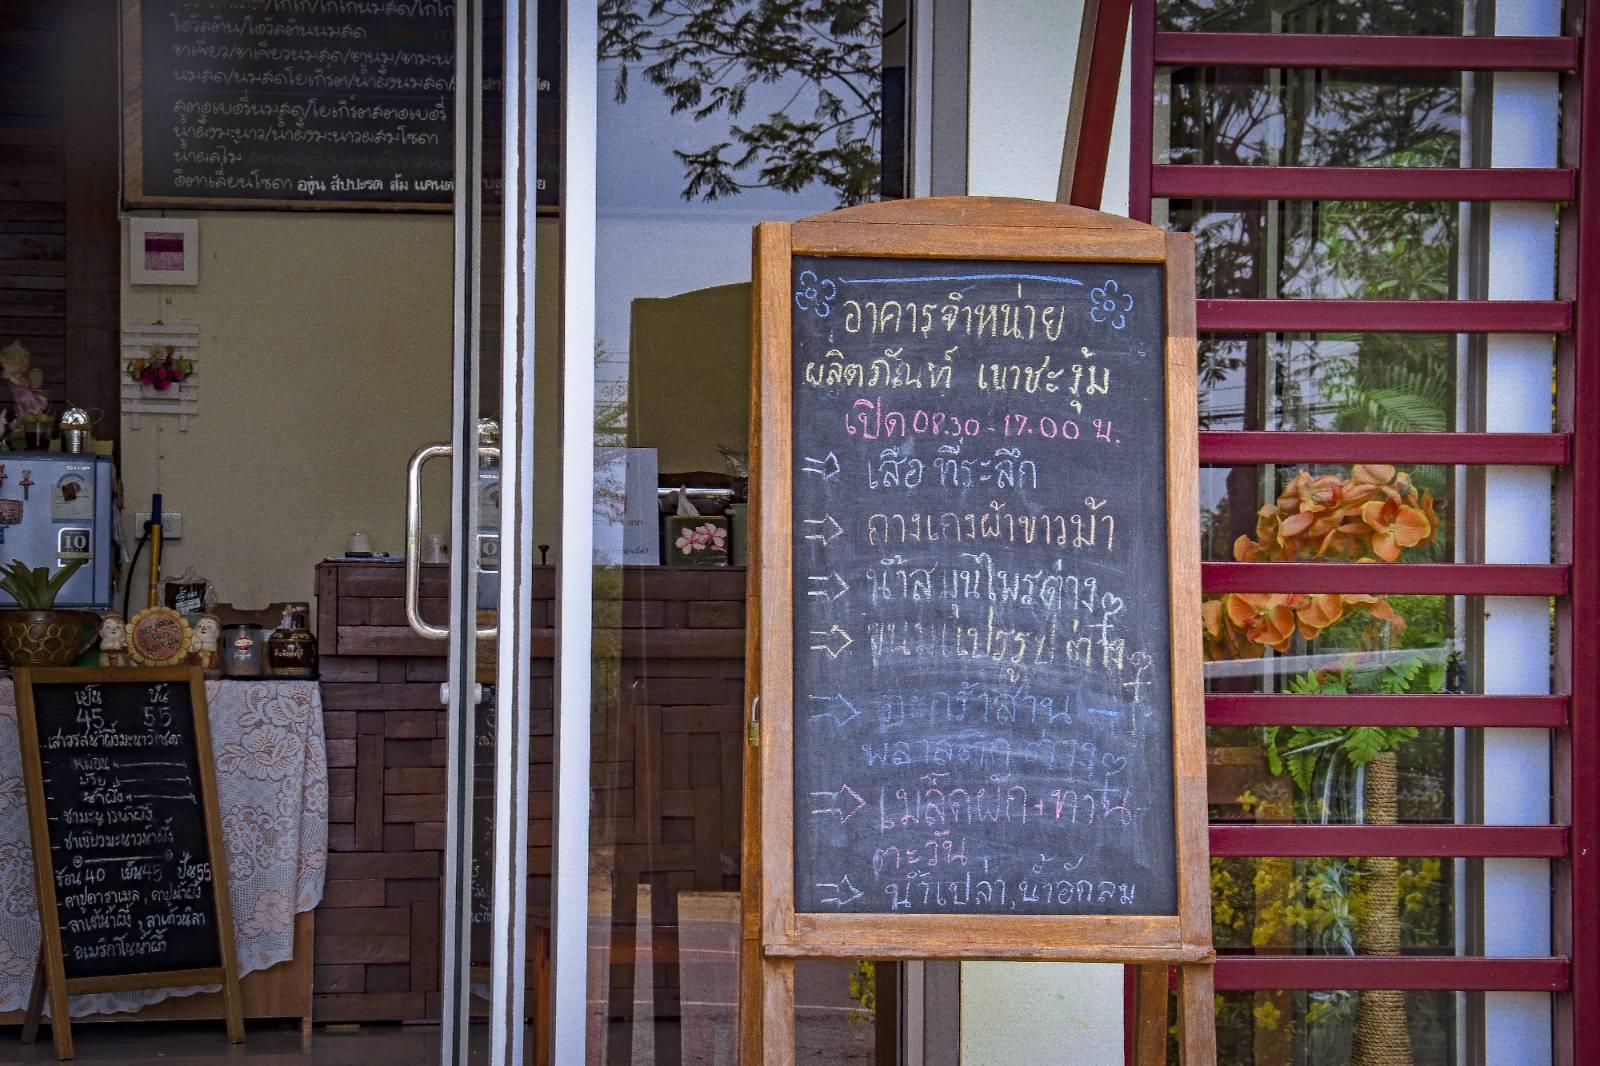 โอวัลติน/โอวัลตินนมสด
ชาเขียว/ชาเขียวนมสด/ชานม/ชามะนาว
นมสด/นมสดโยเกิร์ต/น้ำผึ้งนมสด/
สตอเบอรี่นมสด/โยเกิร์ตสตอเบอรี่
น้ำผึ้งมะนาว/น้ำผึ้งมะนาวผสมโซดา
น้ำผลไม้
อิตาเลี่ยนโซดา องุ่น สัปปะรด ส้ม แคนตา
อาคารจำหน่าย
ผลิตภัณฑ์ เขาชะงุ้ม
เปิด 08.30 - 17.00 น.
⇒ เสื้อ ที่ระลึก
⇒ กางเกงผ้าขาวม้า
⇒ น้ำสมุนไพรต่างๆ
⇒ ขนมแปรรูปต่างๆ
⇒ ตะกร้าสาน -
พลาสติก ต่างๆ
⇒ เมล็ดผัก + ทาน
ตะวัน
⇒ น้ำเปล่า, น้ำอัดลม
SHARP
10
เย็น ปั่น
45 55
- เสาวรสน้ำผึ้งมะนาวโซดา
หม่อน "
บ๊วย
น้ำผึ้ง "
- ชามะนาวน้ำผึ้ง
- ชาเขียวมะนาวน้ำผึ้ง
ร้อน 40 เย็น 45 ปั่น 55
- คาปูคาราเมล, คาปูน้ำผึ้ง
- ลาเต้น้ำผึ้ง, ลาเต้วนิลา
- อเมริกาโน่น้ำผึ้ง